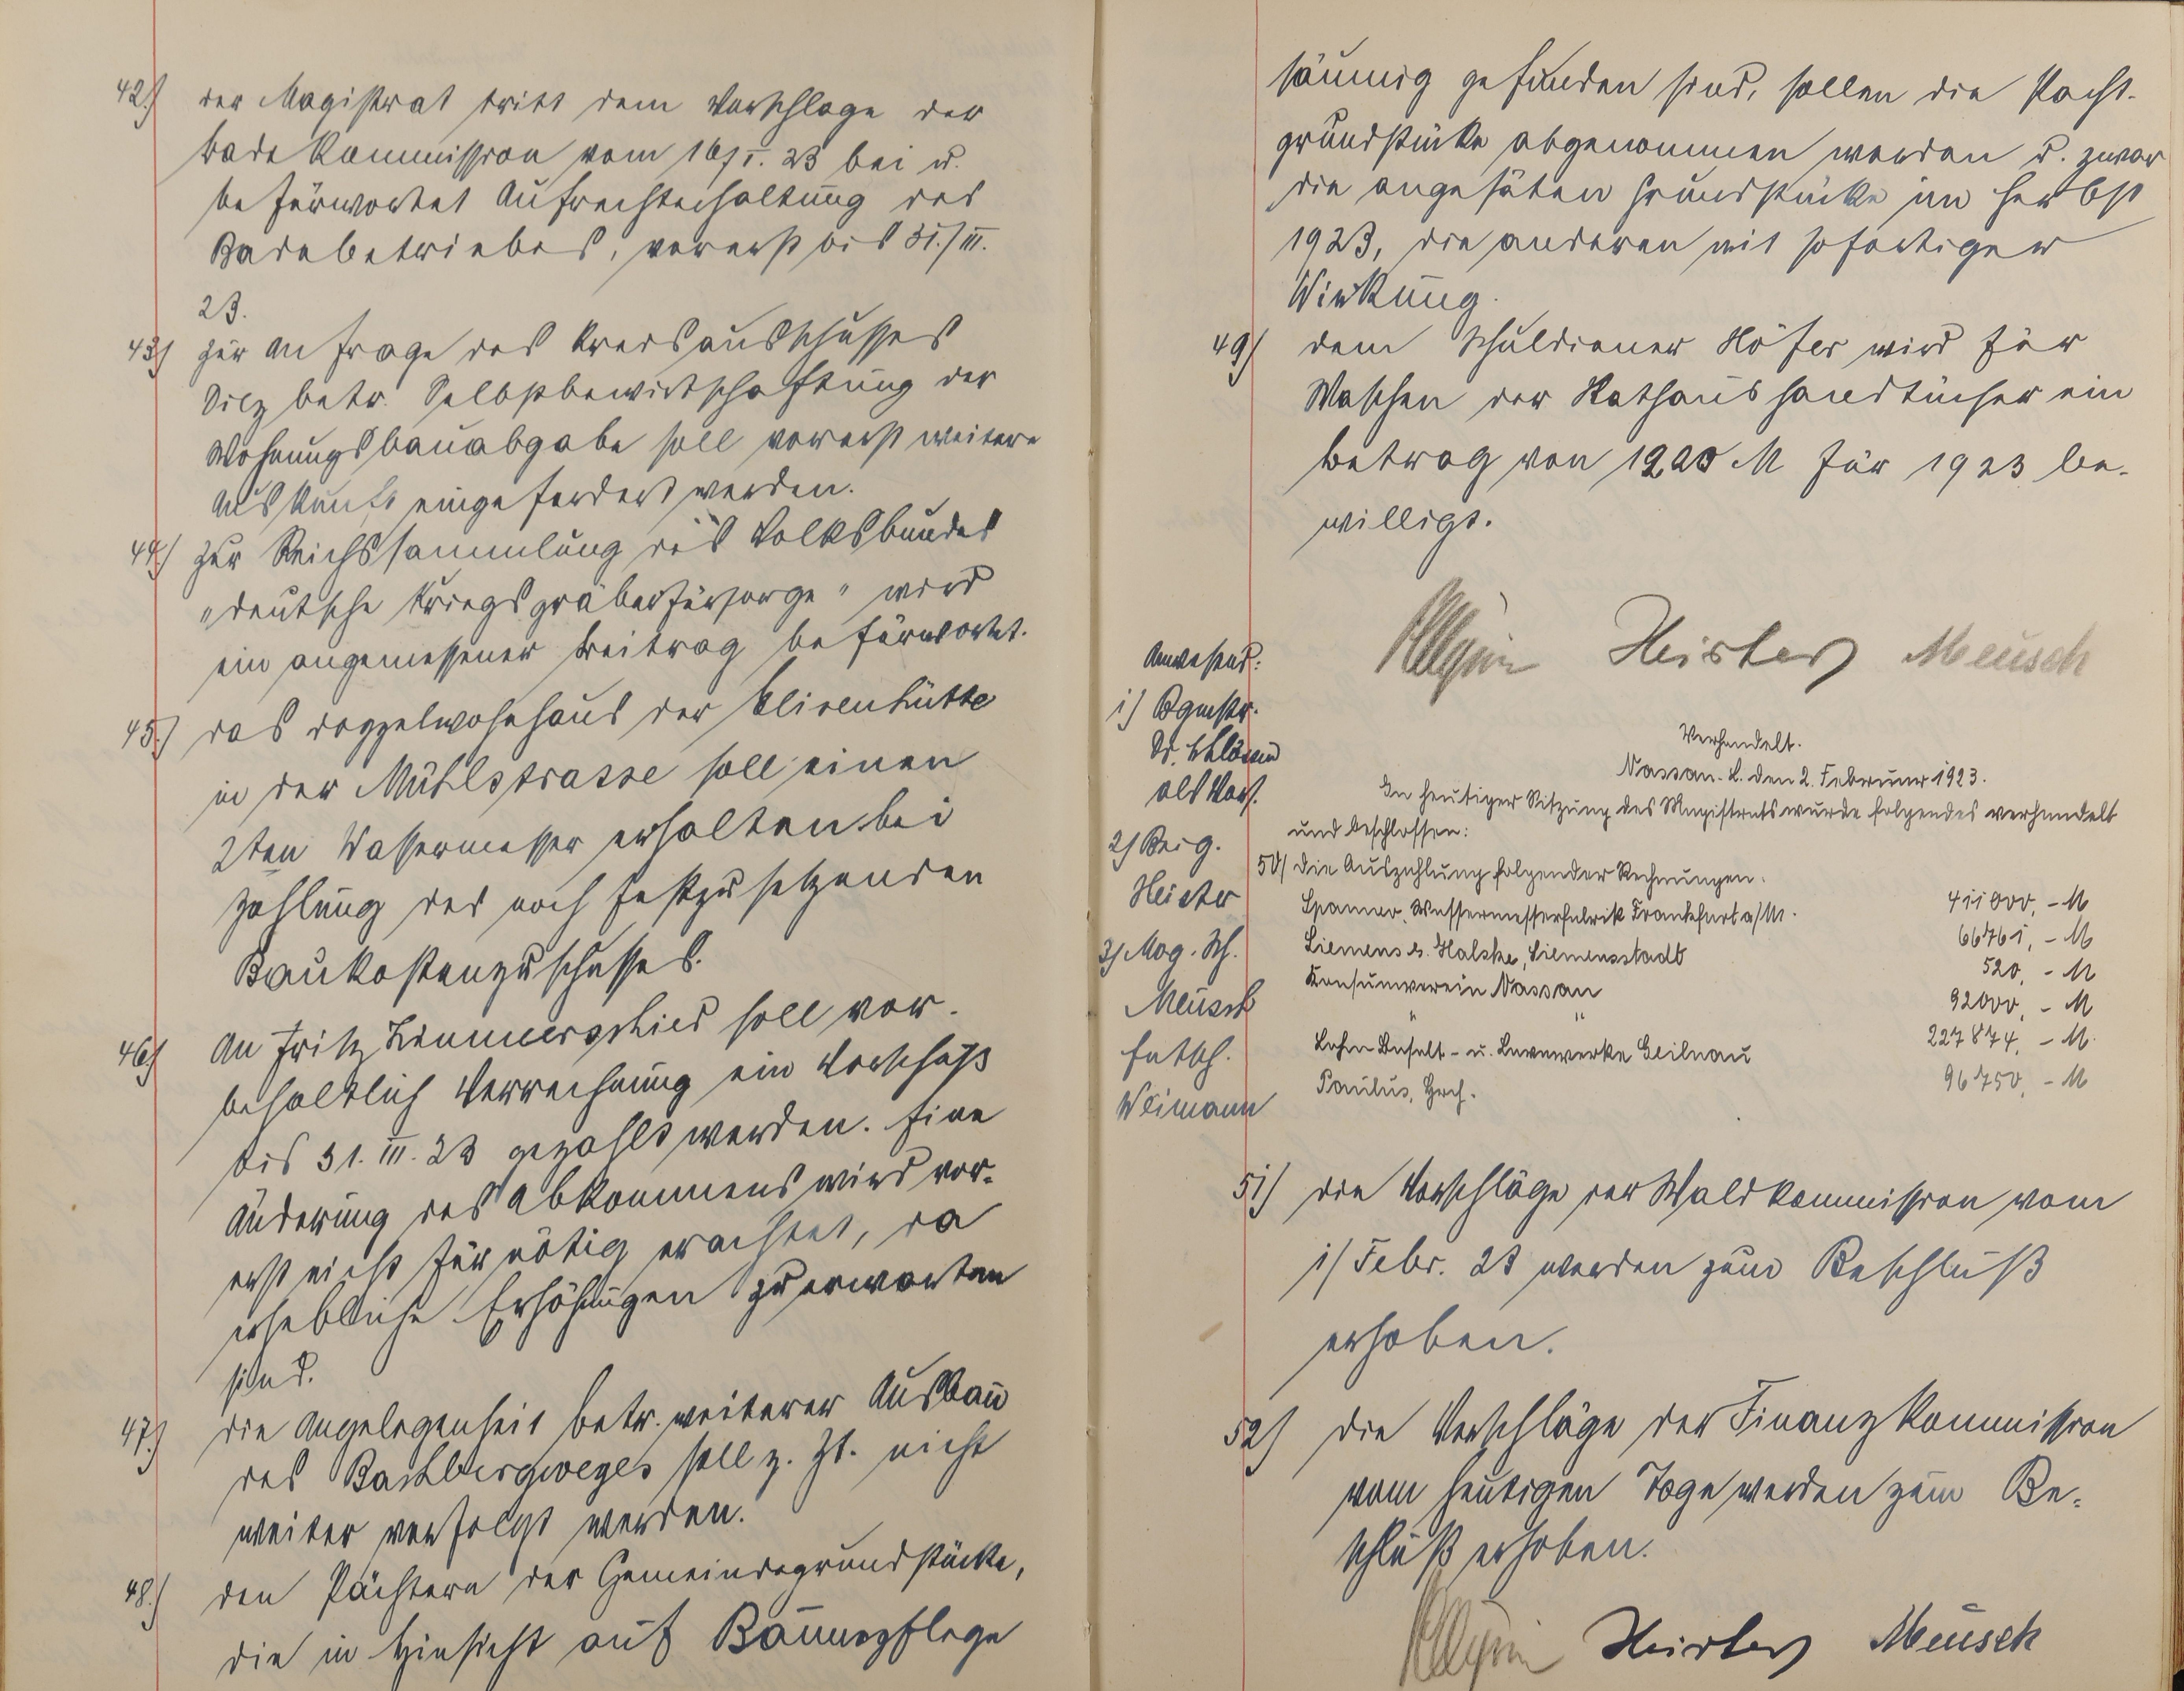 42.) der Magistrat tritt dem Vorschlage der
Badekommission vom 16/I. 23 bei u.
befürwortet Aufrechterhaltung des
Badebetriebes, vorerst bis 31./III.
23.
43) zur Anfrage des Kreisausschusses
Diez betr. Selbstbewirtschaftung der
Wohnungsbauabgabe soll vorerst weitere
Auskunft eingefordert werden.
44.) zur Reichssammlung des Volksbundes
"deutsche Kriegsgräberfürsorge" wird
ein angemessener Beitrag befürwortet.
45.) das Doppelwohnhaus der Elisenhütte
in der Mühlstrasse soll einen
2ten Wassermesser erhalten bei
Zahlung des noch festzusetzenden
Baukostenzuschusses.
46) An Fritz Zimmerschied soll vor-
behaltlich Verrechnung ein Vorschuß
bis 31. III. 23 gezahlt werden. Eine
Änderung des Abkommens wird vor-
erst nicht für nötig erachtet, da
erhebliche Erhöhungen zu erwarten
sind.
47.) die Angelegenheit betr. weiterer Ausbau
des Bachbergweges soll z. Zt. nicht
weiter verfolgt werden.
48.) den Pächtern der Gemeindegrundstücke,
die in Hinsicht auf Baumpflege
säumig gefunden sind, sollen die Pacht-
grundstücke abgenommen werden u. zwar
die angesäten Grundstücke im Herbst
1923, die anderen mit sofortiger
Wirkung.
49) dem Schuldiener Höfer wird für
Waschen der Rathaushandtücher ein
Betrag von 1200 M für 1923 be-
willigt.
Heister Meusch
Anwesend:
1) Bgmstr.
als Vors.
2) Beig.
Heister
3) Mag. Sch.
Meusch
Weimann
Verhandelt.
Nassau. L. den 2. Februar 1923.
In heutiger Sitzung des Magistrats wurde folgendes verhandelt
und beschlossen:
50) die Auszahlung folgender Rechnungen.
Spanner, Wassermesserfabrik Frankfurt a/M. 411000,- M
Siemens u. Halske, Siemensstadt 66761,- M
Konsumverein Nassau 520,- M
" " 92000,- M
Lahn Basalt- u. Lavawerke Geilnau 227874,- M.
Paulus, Hrch. 96750,- M
51) die Vorschläge der Waldkommission vom
1/ Febr. 23 werden zum Beschluß
erhoben.
52) die Vorschläge der Finanzkommission
vom heutigen Tage werden zum Be-
schluß erhoben.
Heister Meusch